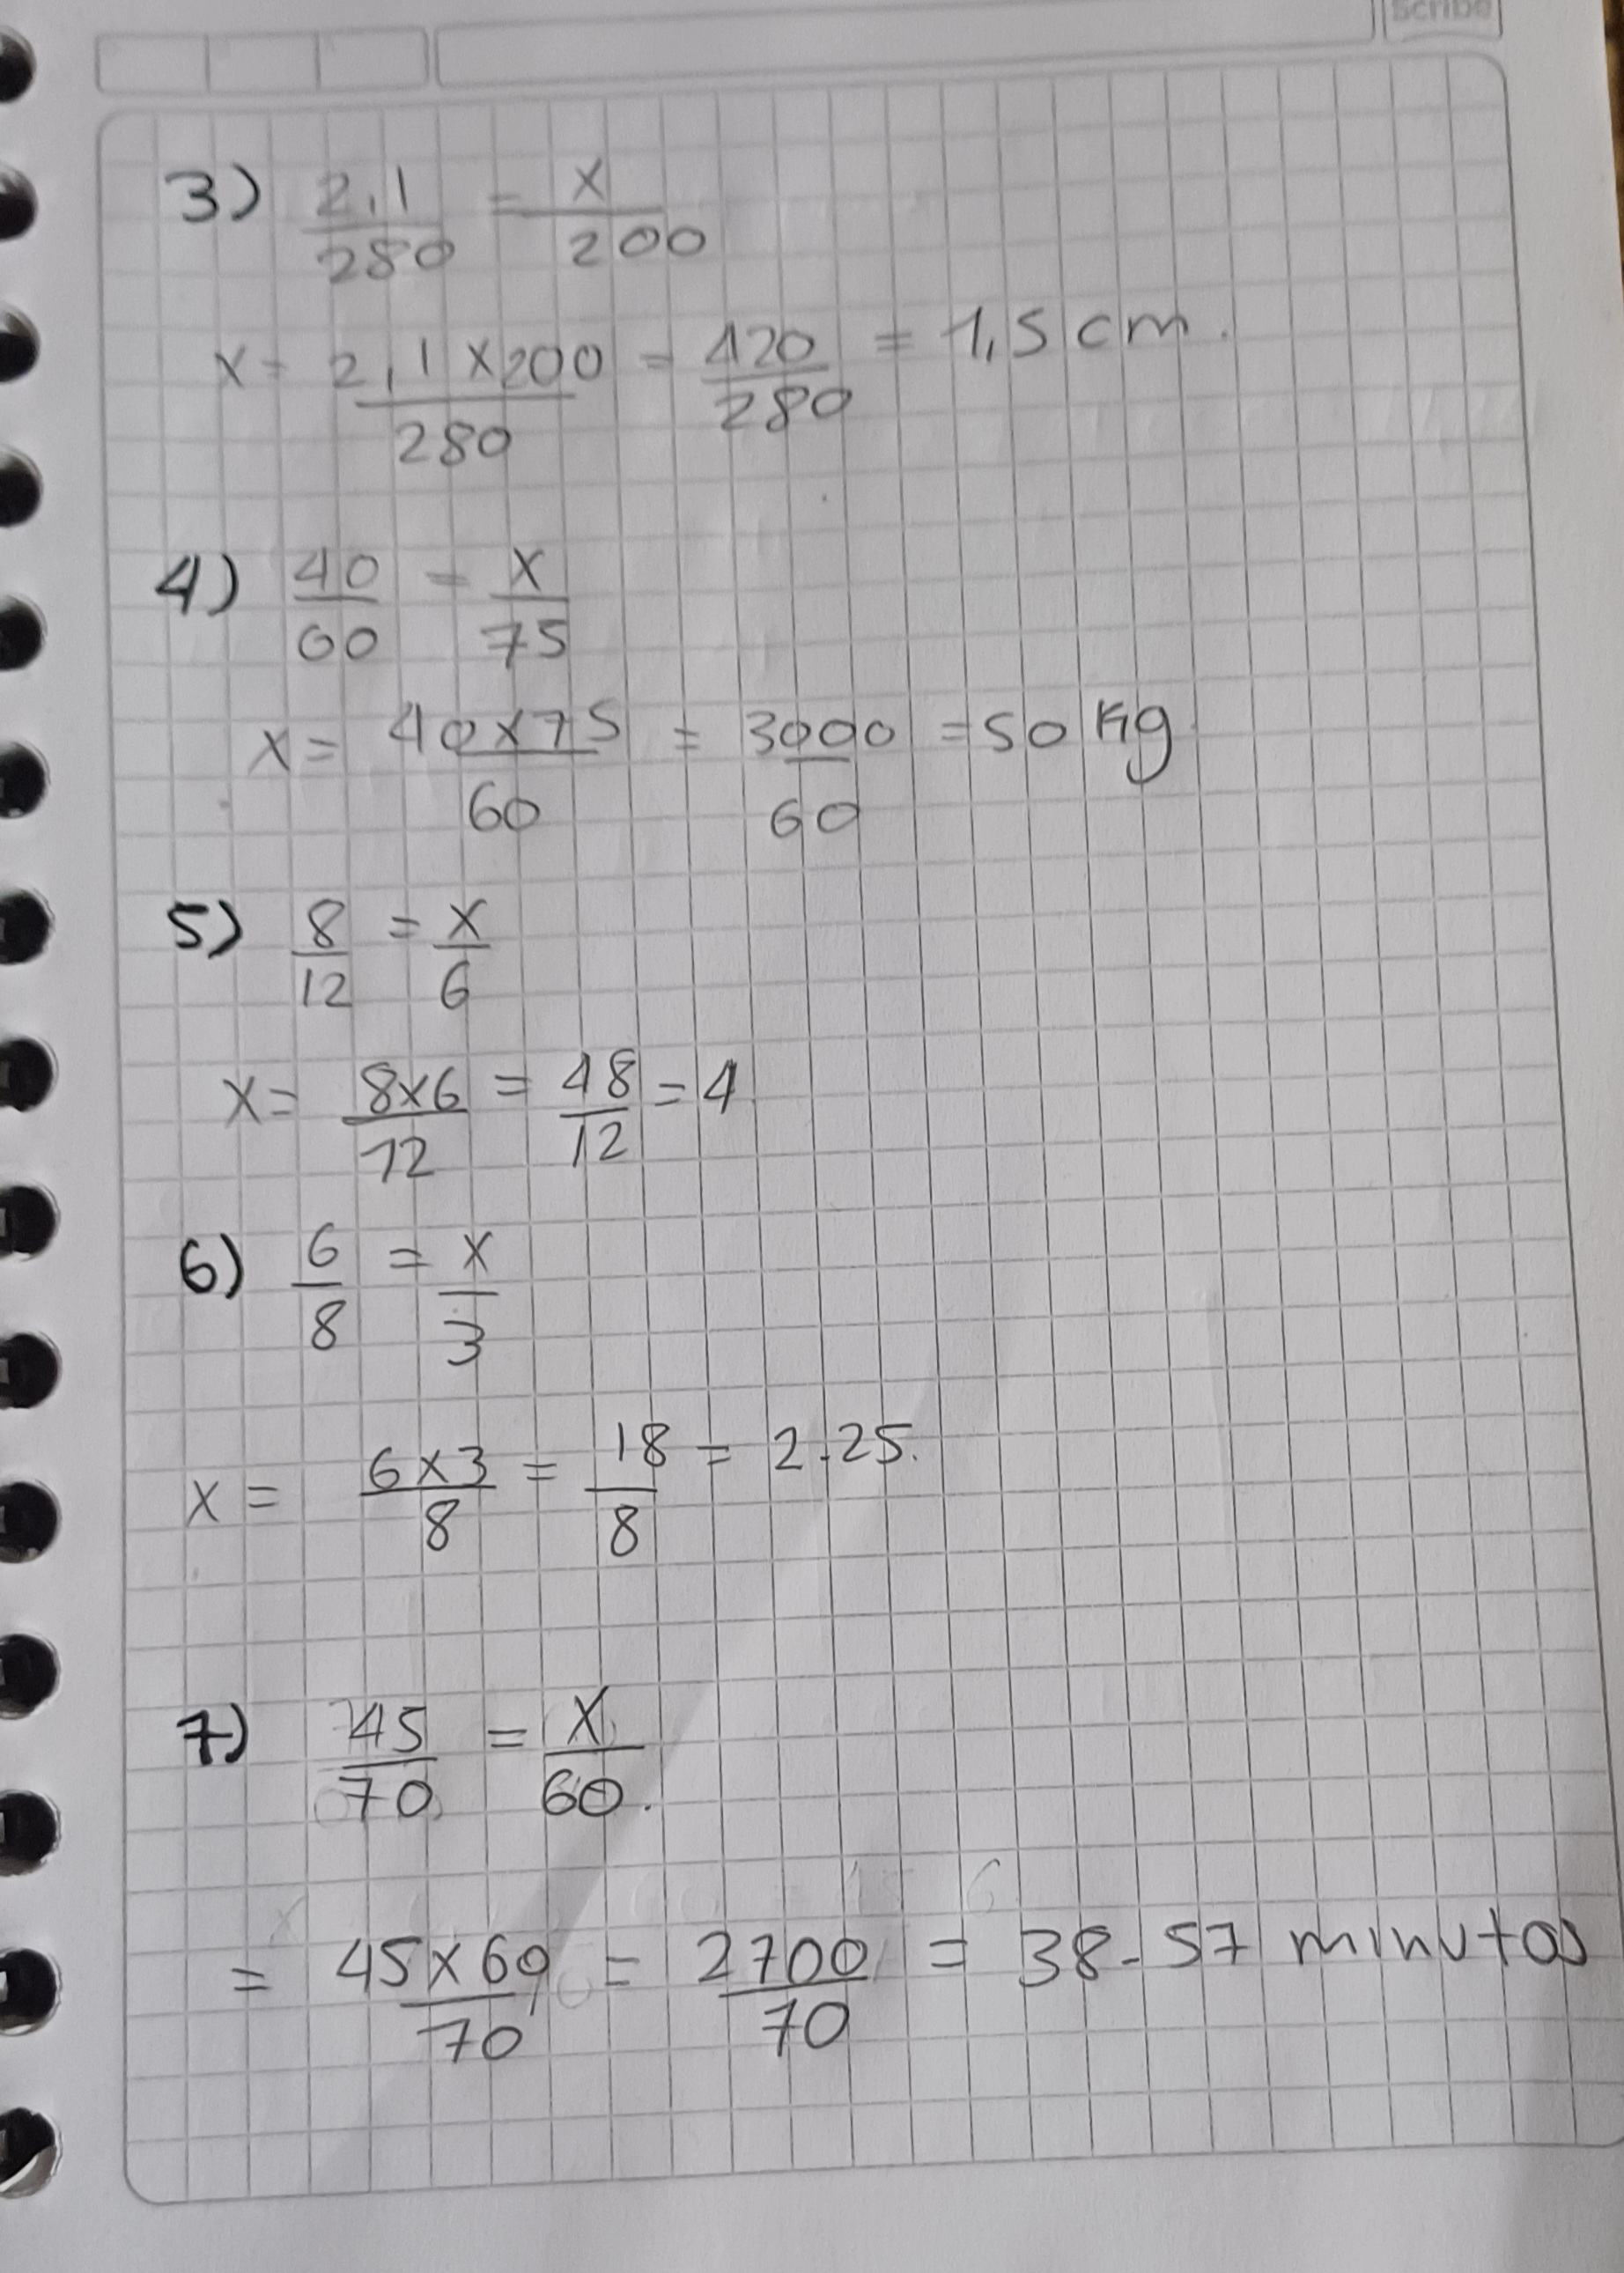 Scribe
3) 2,1/280 = x/200
x = 2,1 x 200/280 = 420/280 = 1,5 cm.
4) 40/60 = x/75
x = 40 x 75/60 = 3000/60 = 50 kg
5) 8/12 = x/6
x = 8x6/12 = 48/12 = 4
6) 6/8 = x/3
x = 6x3/8 = 18/8 = 2.25.
7) 45/70 = x/60.
= 45x60/70 = 2700/70 = 38.57 minutos